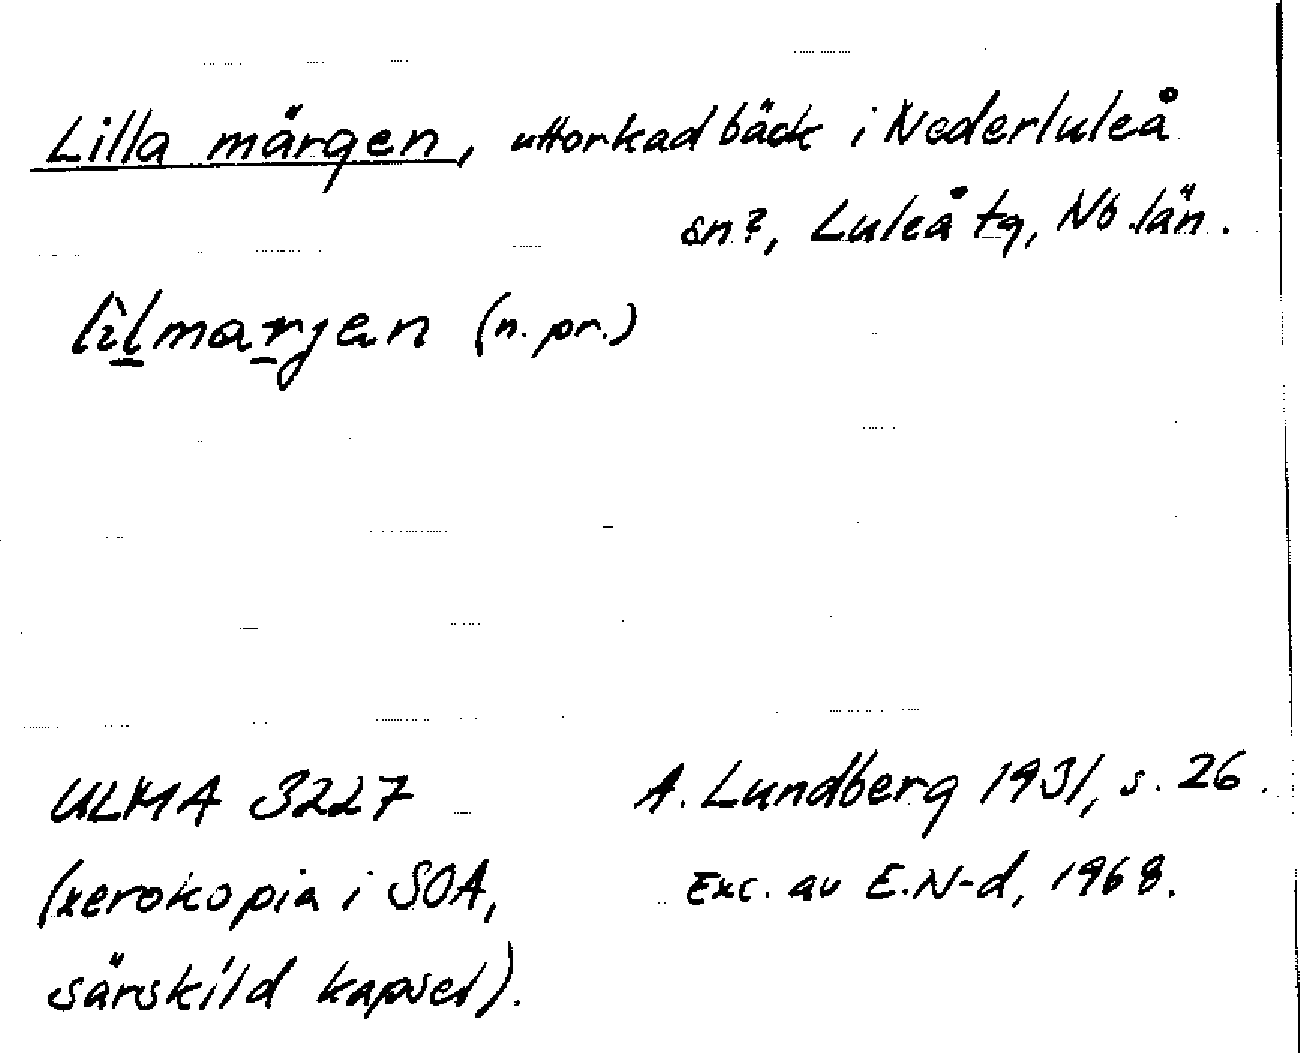 Lilla märgen, uttorkad bäck i Nederluleå
sn?, Luleå tg, Nb. län.
lìlmarjen (n. pr.)
ULMA 3227
(xerokopia i SOA,
särskild kapsel).
A. Lundberg 1931, s. 26.
Exc. av E.N-d, 1968.